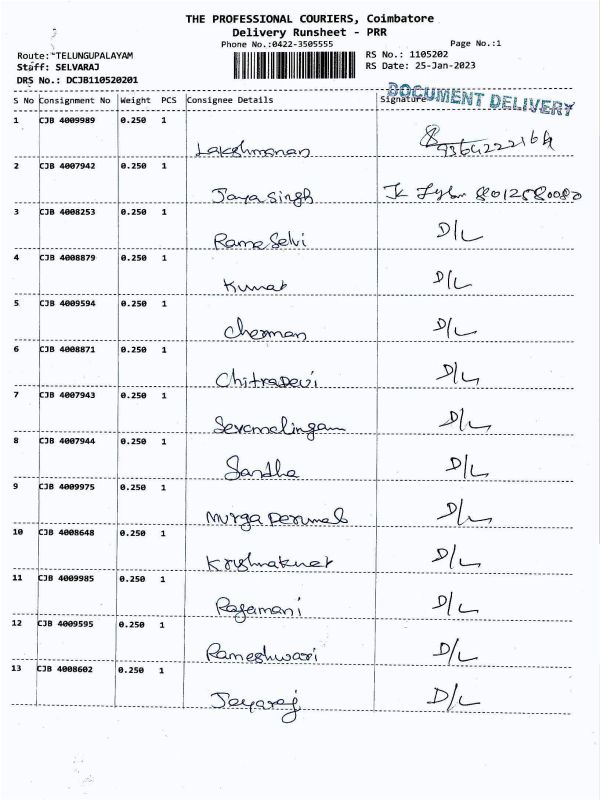 THE PROFESSIONAL COURIERS, Coimbatore
Delivery Runsheet - PRR
Phone No.:0422-3505555 Page No.:1
Route: TELUNGUPALAYAM RS No.: 1105202
Staff: SELVARAJ RS Date: 25-Jan-2023
DRS No.: DCJB110520201
DOCUMENT DELIVERY
S No Consignment No Weight PCS Consignee Details Signature
1 CJB 4009989 0.250 1
Lakshmanan
2 CJB 4007942 0.250 1
Jayasingh 8012580080
3 CJB 4008253 0.250 1
Rama Selvi D/L
4 CJB 4008879 0.250 1
Kumar D/L
5 CJB 4009594 0.250 1
Cherman D/L
6 CJB 4008871 0.250 1
ChitraDevi D/L
7 CJB 4007943 0.250 1
Sevamalingam D/L
8 CJB 4007944 0.250 1
Sardha D/L
9 CJB 4009975 0.250 1
Murga Perumal D/L
10 CJB 4008648 0.250 1
Krishnakumar D/L
11 CJB 4009985 0.250 1
Rajamani D/L
12 CJB 4009595 0.250 1
Rameshwari D/L
13 CJB 4008602 0.250 1
Jeyaraj D/L